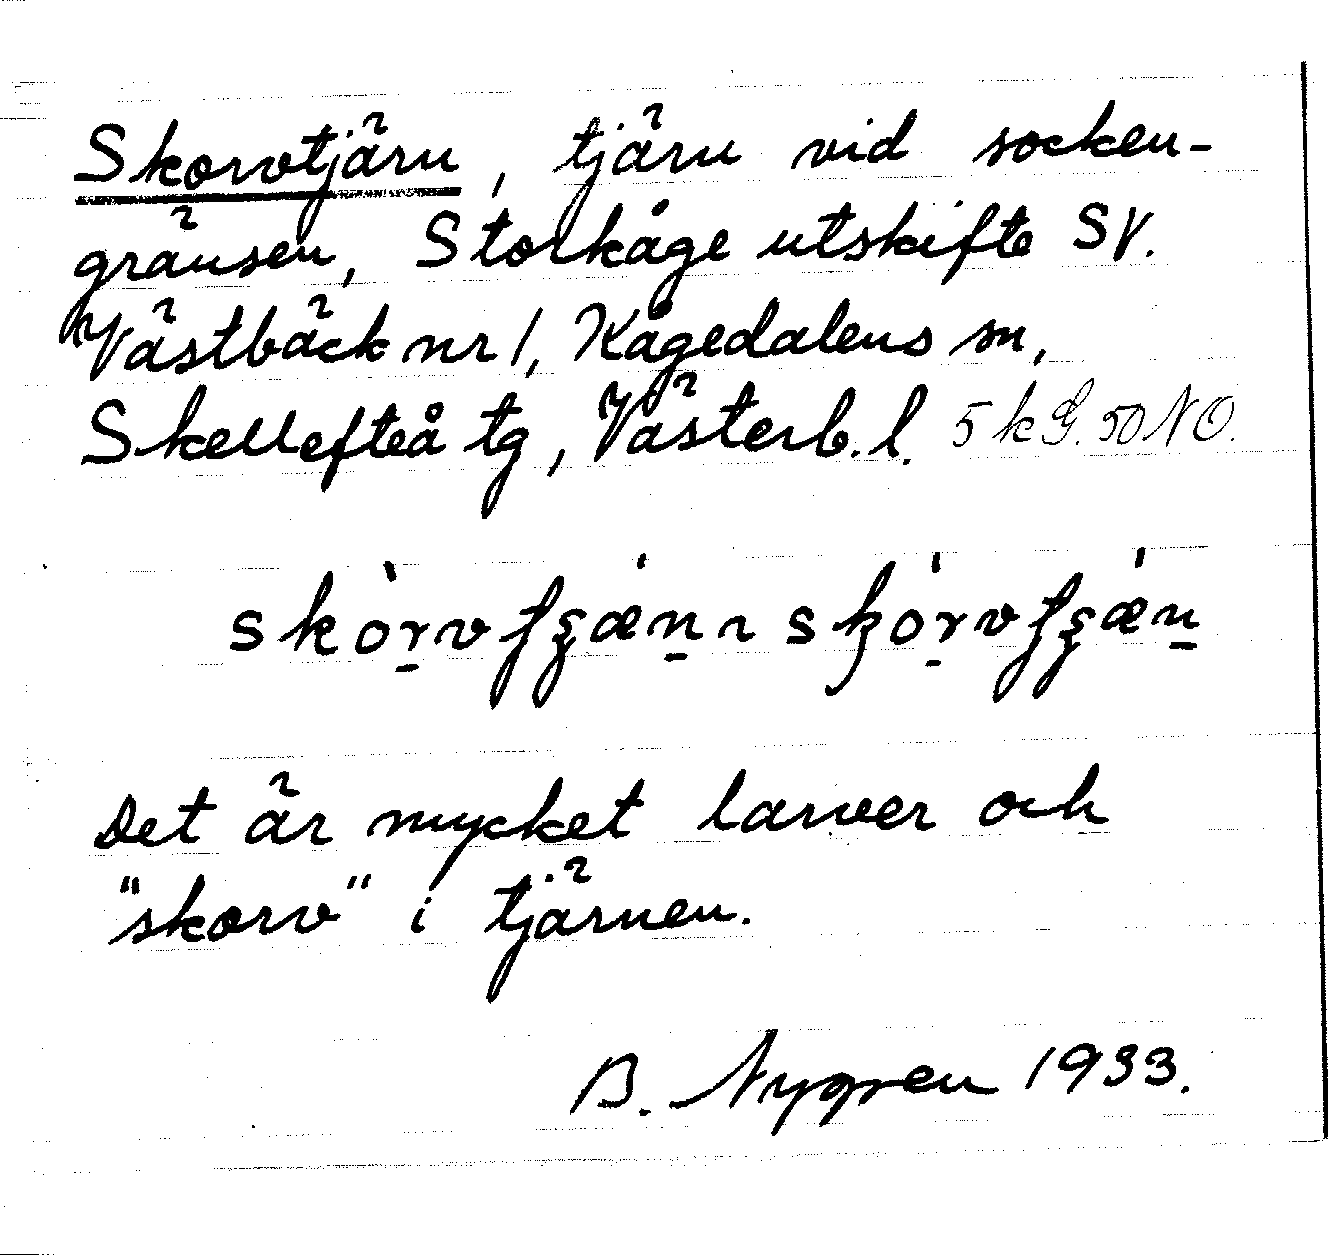 Skorvtjärn, tjärn vid socken-
gränsen, Storkåge utskifte SV.
Västbäck nr 1, Kågedalens sn,
Skellefteå tg, Västerb. l. 5 kG. 50 NO.
Det är mycket larver och
"skorv" i tjärnen.
B. Nygren 1933.